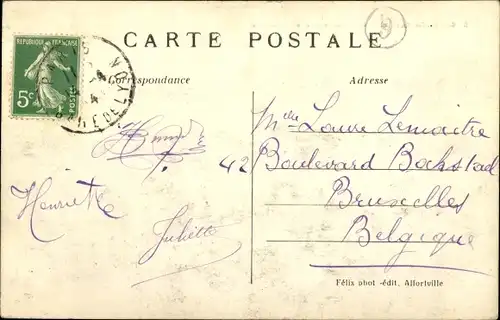 CARTE POSTALE
REPUBLIQUE FRANÇAISE
5c POSTES
Correspondance
Adresse
Mlle Louise Lemaitre
42 Boulevard Bockstael
Bruxelles
Belgique
Henriette
Juliette
Félix phot -édit. Alfortville